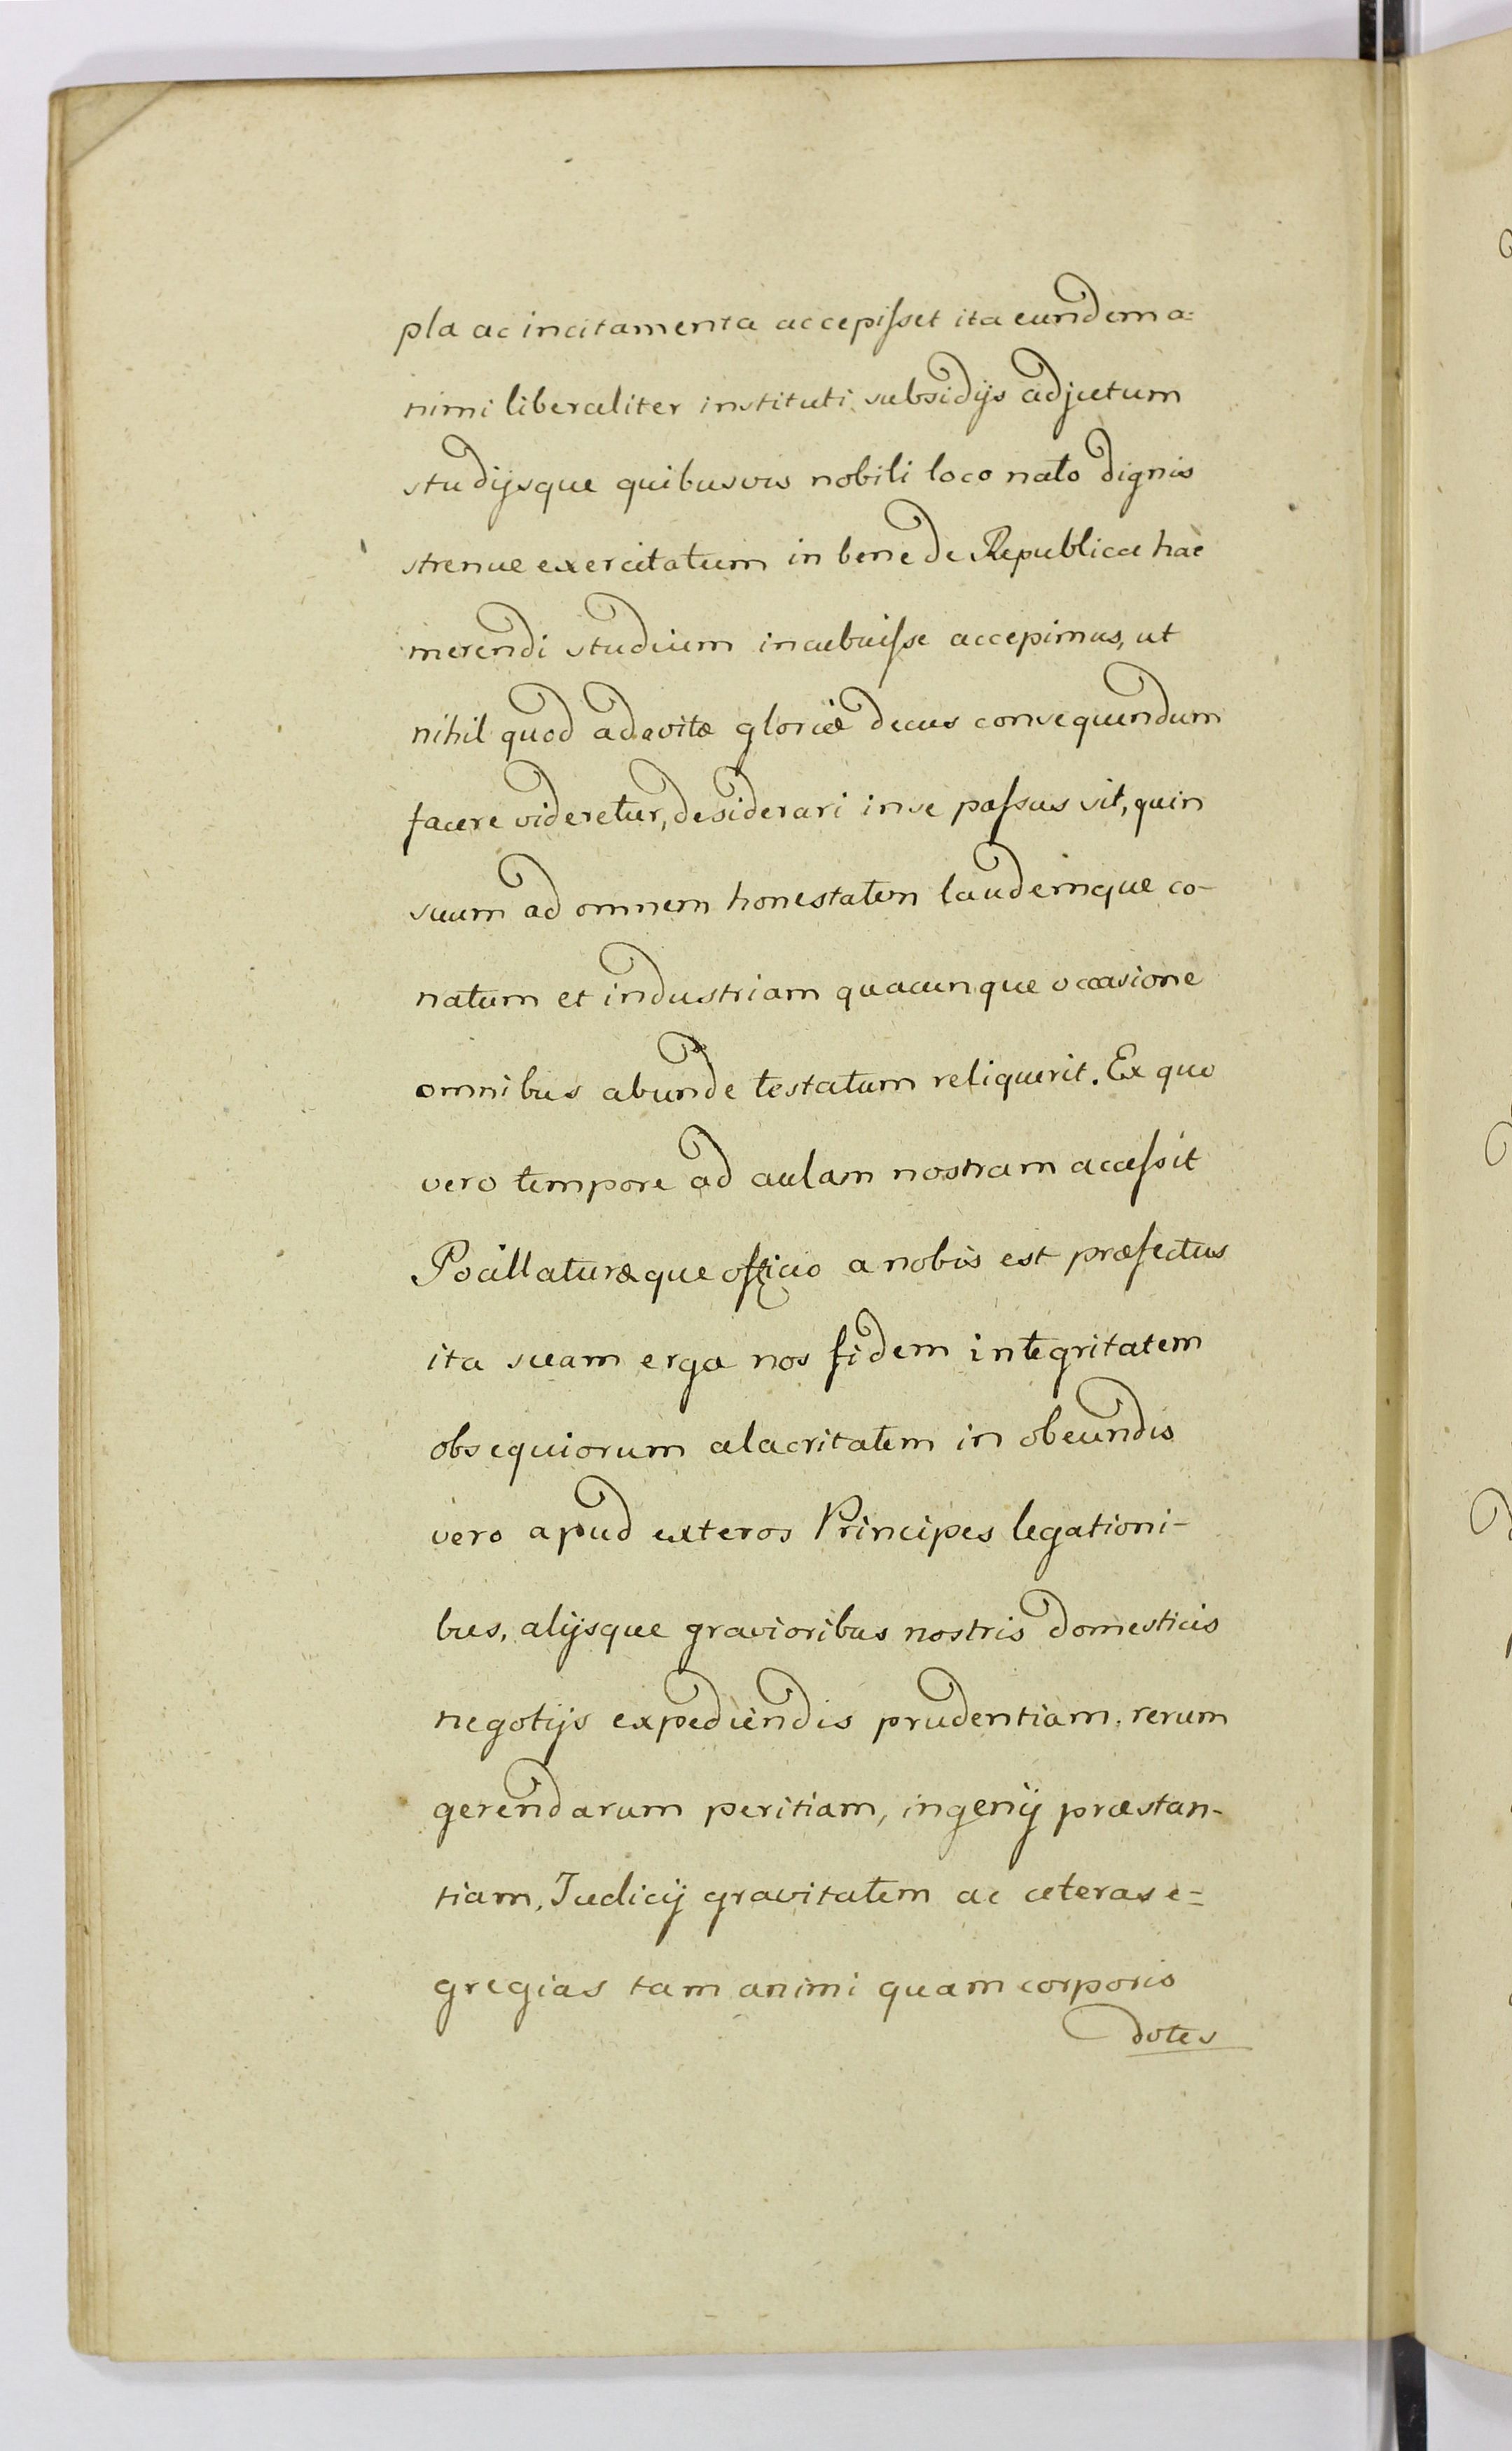 pla ac incitamenta accepisset ita eundem a=
nimi liberaliter instituti subsidijs adjutum
studijsque quibusvis nobili loco nato dignis
strenue exercitatum in bene de Republica hac
merendi studium incubuisse accepimus, ut
nihil quod ad avitæ gloriæ decus consequendum
facere videretur, desiderari in se passus sit, quin
suum ad omnem honestatem laudemque co-
natum et industriam quacunque occasione
omnibus abunde testatum reliquerit. Ex quo
vero tempore ad aulam nostram accessit
Pocillaturæque officio a nobis est præfectus
ita suam erga nos fidem integritatem
obsequiorum alacritatem in obeundis
vero apud exteros Principes legationi-
bus, alijsque gravioribus nostris domesticis
negotijs expediendis prudentiam, rerum
gerendarum peritiam, ingenij præstan-
tiam, Judicij gravitatem ac ceteras e=
gregias tam animi quam corporis
dotes